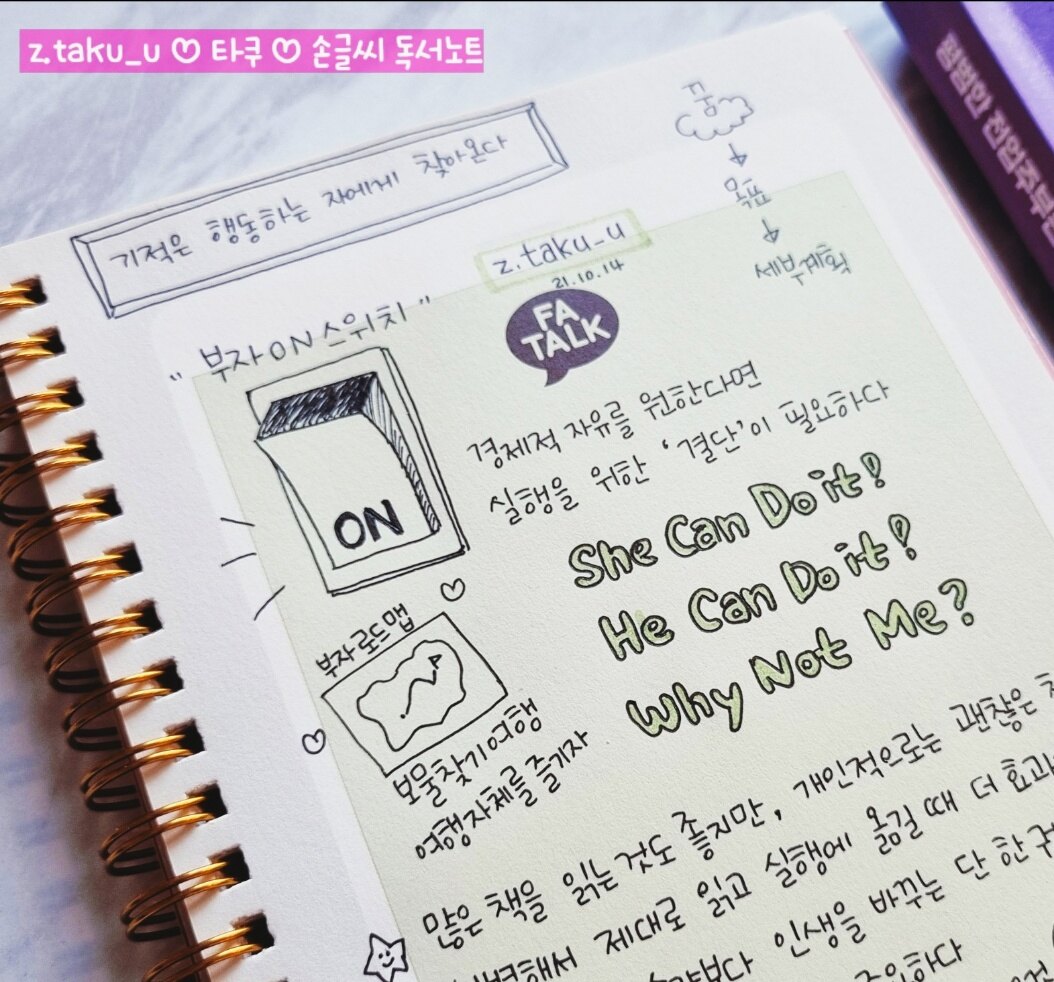 z.taku_u ♡ 타쿠 ♡ 손글씨 독서노트
평범한 전업주부
기적은 행동하는 자에게 찾아온다
꿈
↓
목표
↓
세부계획
z.taku_u
21.10.14
FA
TALK
"부자 ON 스위치"
ON
경제적 자유를 원한다면
실행을 위한 '결단'이 필요하다
She Can Do it!
He Can Do it!
Why Not Me?
부자로드맵
보물찾기여행
여행자체를 즐기자
많은 책을 읽는것도 좋지만, 개인적으로는 괜찮은
제대로 읽고 실행에 옮길 때 더
인생을 바꾸는 단 한